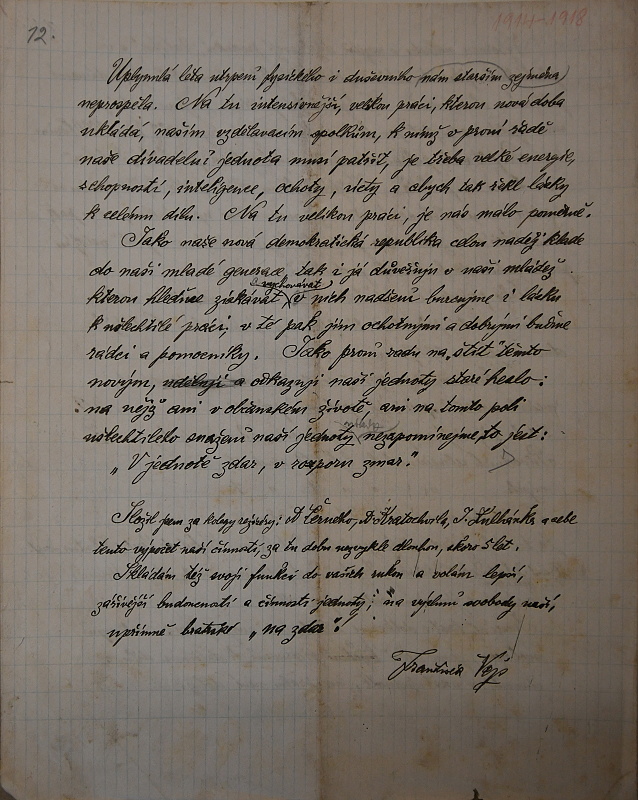 12.
1914-1918
Uplynulá léta utrpení fysického i duševního nám starším zejména
neprospěla. Na tu intensivnější, velkou práci, kterou nová doba
ukládá, našim vzdělavacím spolkům, k nimž v první řadě
naše divadelní jednota musí patřit, je třeba velké energie,
schopností, inteligence, ochoty, víry a abych tak řekl lásky
k celému dílu. Na tu velikou práci, je nás málo poměrně.
Jako naše nová demokratická republika celou naděj klade
do naší mladé generace, tak i já důvěřuji v naši mládež
vychovávat
kterou hleďme získávat v nich nadšení burcujme i lásku
k ušlechtilé práci, v té pak jim ochotnými a dobrými buďme
rádci a pomocníky. Jako první radu na „štít" těmto
novým, uděluji a odkazuji naší jednoty staré heslo:
na nějž ani v občanském životě, ani na tomto poli
ušlechtilého snažení naší jednoty nezapomínejme, to jest:
„V jednotě zdar, v rozporu zmar."
Složil jsem za kolegy režiséry: A. Černého, A. Kratochvíla, J. Kulhánka a sebe
tento výpočet naší činnosti, za tu dobu nezvykle dlouhou, skoro 5 let.
Skládám též svoji funkci do vašich rukou a volám lepší,
zářivější budoucnosti a činnosti jednoty, na výsluní svobody naší,
upřímné bratrské „na zdar"!
František Vejs